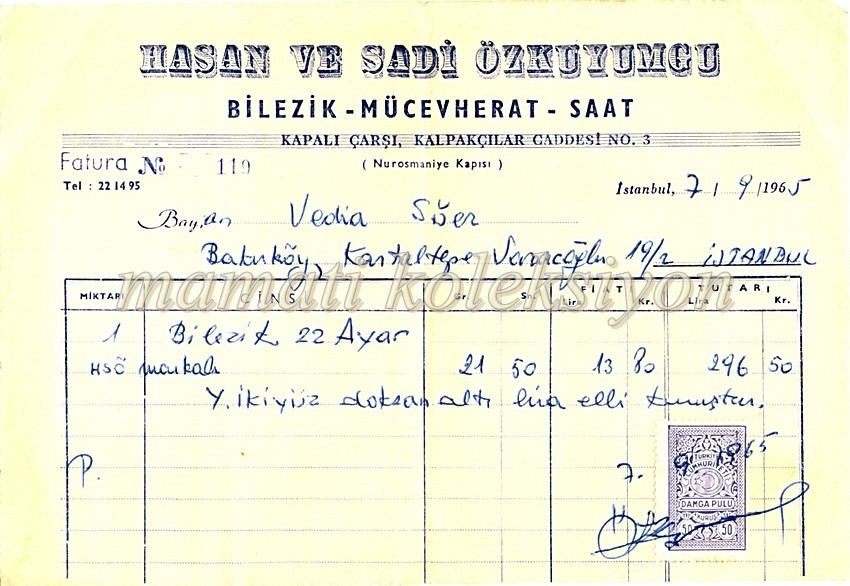 HASAN VE SADİ ÖZKUYUMCU
BİLEZİK - MÜCEVHERAT - SAAT
KAPALI ÇARŞI, KALPAKÇILAR CADDESİ NO. 3
( Nurosmaniye Kapısı )
Fatura No 119
Tel : 22 14 95
İstanbul, 7 / 9 / 1965
Bay, an Vedia
Bakırköy, Kartaltepe 19/2 İSTANBUL
mamati koleksiyon
MİKTARI CİNS Gr. Sn. FİAT Lira Kr. TUTARI Lira Kr.
1 Bilezik 22 Ayar
HSÖ markalı 21 50 13 80 296 50
Y. İkiyüz doksan altı lira elli kuruştur.
P.
7. 9. 1965
TÜRKİYE
CUMHURİYETİ
DAMGA PULU
50 KURUŞ 50